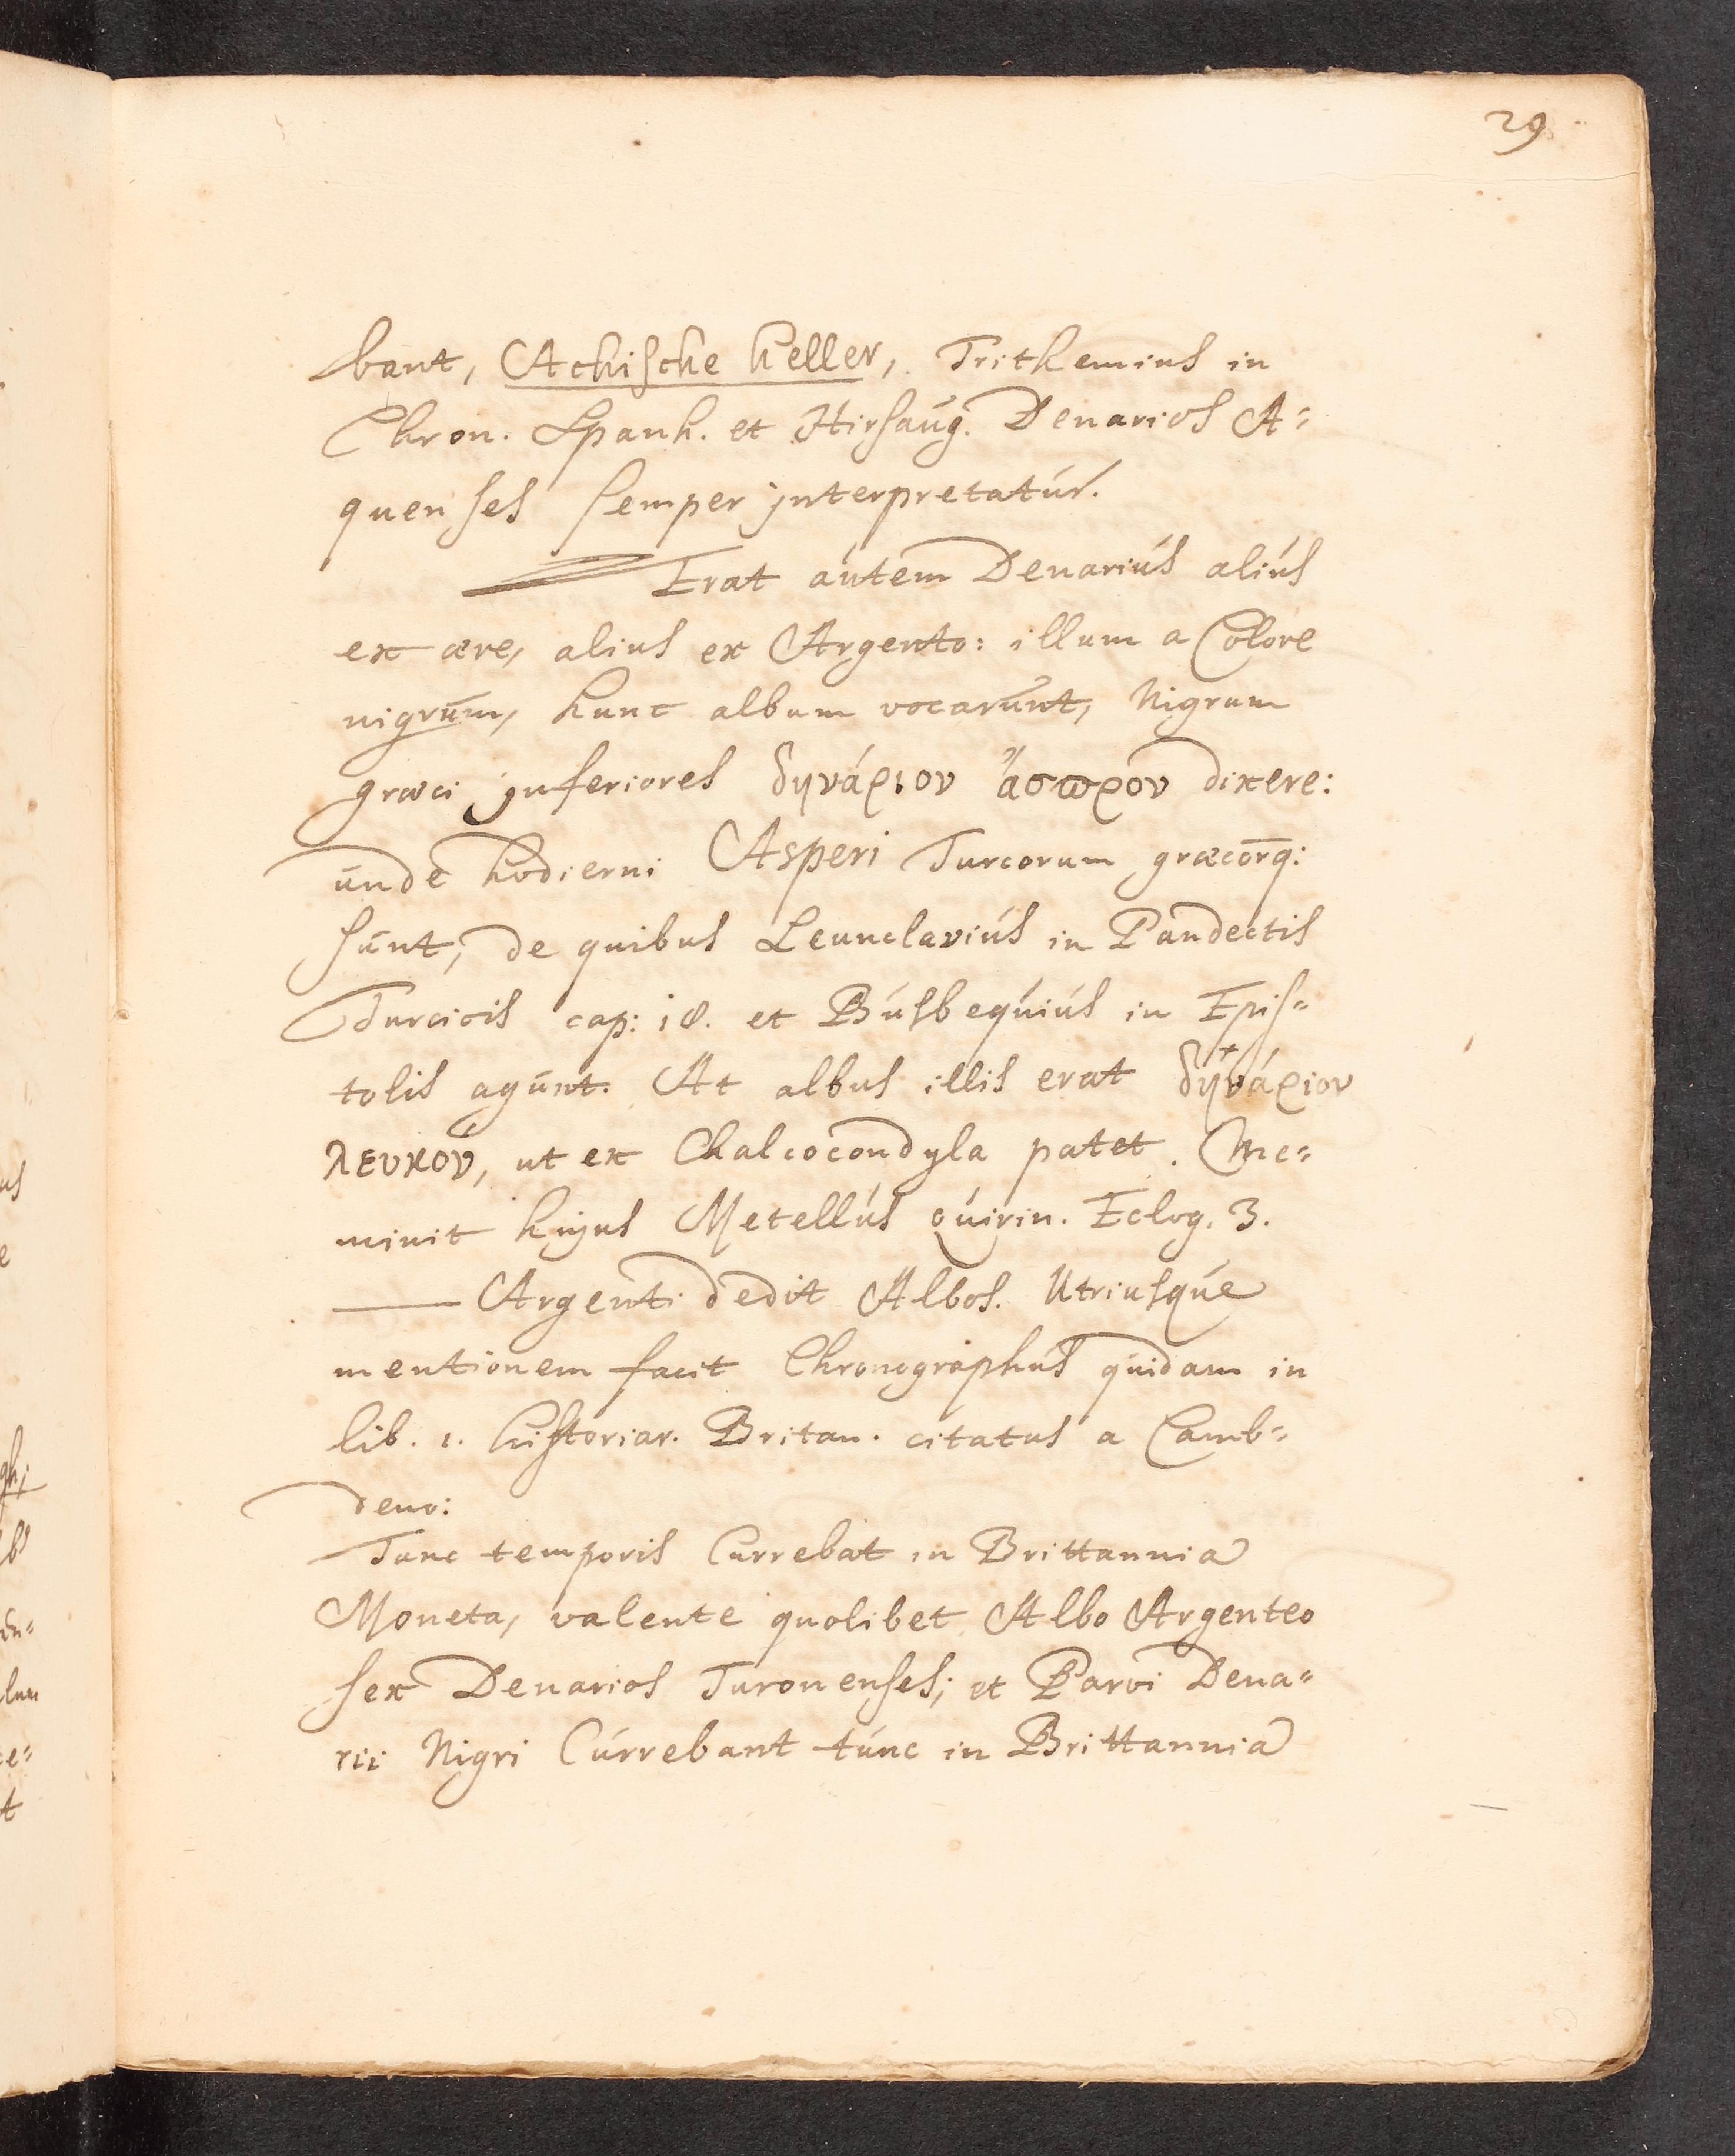 29
bant, Achische heller, Trithemius in
Chron. Spanh. et Hirsaug. Denarios A=
quenses semper jnterpretatur.
Erat autem Denarius alius
ex ære, alius ex Argento: illum a Colore
nigrum, hunc album vocarunt, Nigrum
græci jnferiores δηνάριον ἄσπρον dixere:
unde hodierni Asperi Turcorum græcorq:
sunt, de quibus Leunclavius in Pandectis
Turcicis cap: 18. et Busbequius in Epis=
tolis agunt. At albus illis erat δηνάριον
λευκον, ut ex Chalcocondyla patet. Me=
minit hujus Metellus Quirin. Eclog. 3.
— Argenti dedit Albos. Utriusque
mentionem facit Chronographus quidam in
lib. 1. historiar. Britan. citatus a Camb=
deno:
Tunc temporis Currebat in Brittannia
Moneta, valente quolibet Albo Argenteo
sex Denarios Turonenses; et Parvi Dena=
rii Nigri Currebant tunc in Brittannia